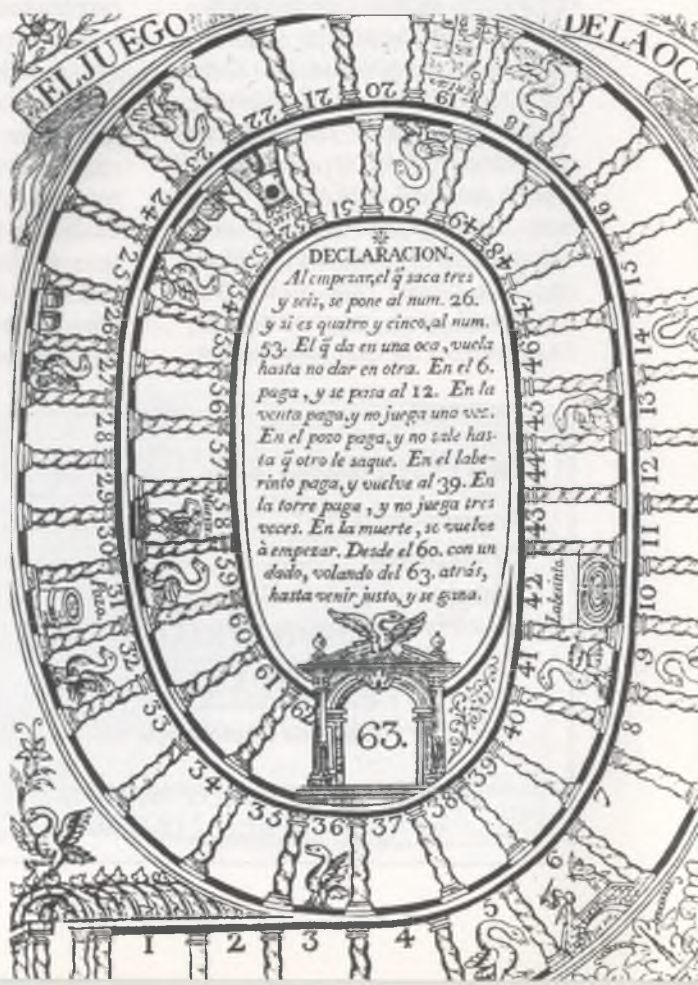 EL JUEGO
DE LA OC
DECLARACION.
Al empezar, el q̃ saca tres
y seis, se pone al num. 26.
y si es quatro y cinco, al num.
53. El q̃ da en una oca, vuela
hasta no dar en otra. En el 6.
paga, y se pasa al 12. En la
venta paga, y no juega una vez.
En el pozo paga, y no sale has-
ta q̃ otro le saque. En el labe-
rinto paga, y vuelve al 39. En
la torre paga, y no juega tres
veces. En la muerte, se vuelve
à empezar. Desde el 60. con un
dado, volando del 63. atrás,
hasta venir justo, y se gana.
1
2
3
4
5
6
7
8
9
10
11
12
13
14
15
16
17
18
19
20
21
22
23
24
25
26
27
28
29
30
31
Pozo.
32
33
34
35
36
37
38
39
40
41
42
Laberinto.
43
44
45
46
47
48
49
50
51
52
53
54
55
56
57
58
59
60
61
62
63.